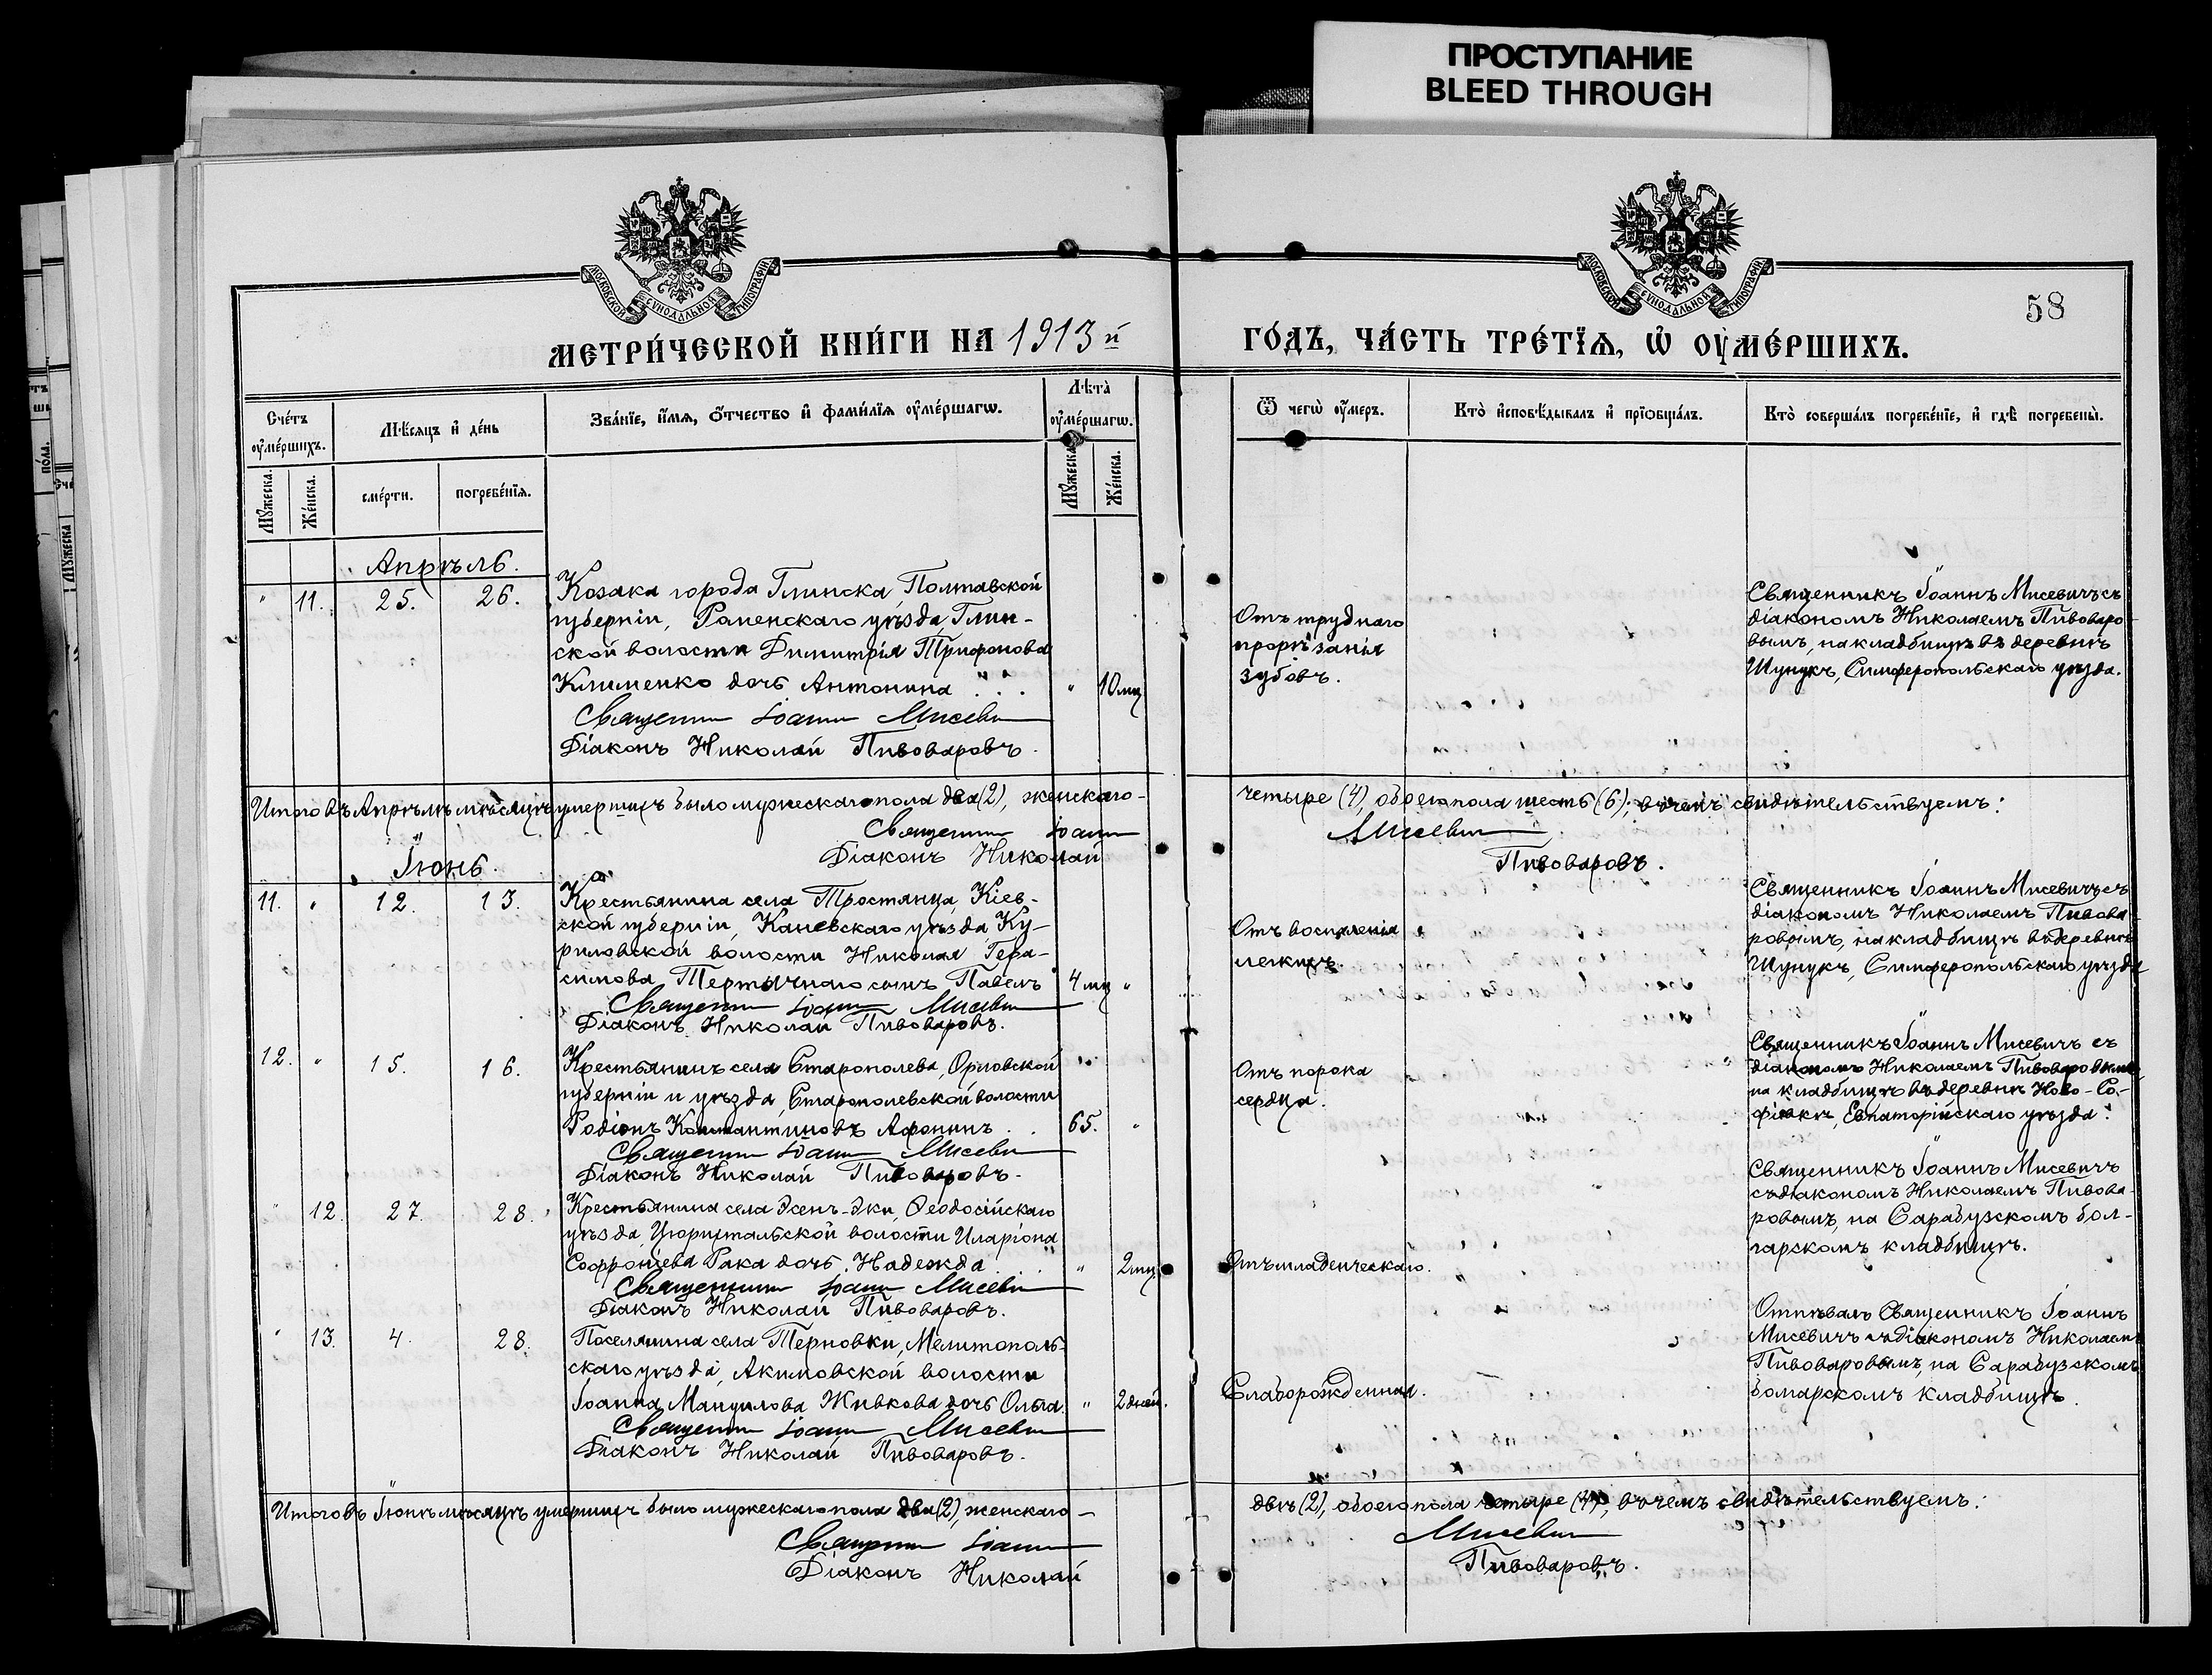 ПРОСТУПАНИЕ
BLEED THROUGH
МОСКОВСКОЙ СѴНОДАЛЬНОЙ ТИПОГРАФІИ
МОСКОВСКОЙ СѴНОДАЛЬНОЙ ТИПОГРАФІИ
58
МЕТРИ́ЧЕСКОЙ КНИ́ГИ НА 1913й ГО́ДЪ, ЧА́СТЬ ТРЕ́ТЇѦ, Ѡ҆ ОУ҆МЕ́РШИХЪ.
Счéтъ оу҆мéршихъ.
Мꙋ́жеска.
Же́нска.
Мѣ́сяцъ и҆ де́нь
сме́рти.
погребе́нїѧ.
Зва́нїе, и҆́мѧ, ѻ҆́тчество и҆ фами́лїѧ оу҆ме́ршагѡ.
Лѣ́та оу҆ме́ршагѡ.
Мꙋ́жеска.
Же́нска.
Ѿ чегѡ̀ оу҆́меръ.
Кто̀ и҆сповѣ́дывалъ и҆ прїѡбща́лъ.
Кто̀ соверша́лъ погребе́нїе, и҆ гдѣ̀ погребены̀.
Апрѣль.
" 11. 25. 26.
Козака города Глинска, Полтавской
губерніи, Роменскаго уѣзда, Глин-
ской волости Димитрія Трифонова
Клименко дочь Антонина " 10 мц
Священникъ Іоаннъ Мисевичъ
Діаконъ Николай Пивоваровъ.
Отъ труднаго
прорѣзанія
зубовъ.
Священникъ Іоаннъ Мисевичъ съ
діакономъ Николаемъ Пивоваро
вымъ, на кладбищѣ въ деревнѣ
Шунукъ, Симферопольскаго уѣзда.
Итого въ Апрѣлѣ мѣсяцѣ умершихъ было мужескаго пола два (2), женскаго - четыре (4), обоего пола шесть (6); въ чемъ свидѣтельствуемъ:
Священникъ Іоаннъ Мисевичъ
Діаконъ Николай Пивоваровъ.
Іюнь.
11. " 12. 13.
Крестьянина села Тростянца, Кіев-
ской губерніи, Каневскаго уѣзда Ку-
риловской волости Николая Гера-
симова Тертычнаго сынъ Павелъ 4 мц "
Священникъ Іоаннъ Мисевичъ
Діаконъ Николай Пивоваровъ.
Отъ воспаленія
легкихъ.
Священникъ Іоаннъ Мисевичъ съ
діакономъ Николаемъ Пивова
ровымъ, на кладбищѣ въ деревнѣ
Шунукъ, Симферопольскаго уѣзда
12. " 15. 16.
Крестьянинъ села Старополева, Орловской
губерніи и уѣзда, Старополевской волости
Родіонъ Константиновъ Афонинъ 65. "
Священникъ Іоаннъ Мисевичъ
Діаконъ Николай Пивоваровъ.
Отъ порока
сердца.
Священникъ Іоаннъ Мисевичъ съ
діакономъ Николаемъ Пивоваровымъ
на кладбищѣ въ деревнѣ Ново-Со-
фіевкѣ, Евпаторійскаго уѣзда.
" 12. 27. 28.
Крестьянина села Эсенъ-Эки, Ѳеодосійскаго
уѣзда, Цюрихтальской волости Иларіона
Софроніева Рака дочь Надежда " 2 мц
Священникъ Іоаннъ Мисевичъ
Діаконъ Николай Пивоваровъ.
Отъ младенческаго.
Священникъ Іоаннъ Мисевичъ
съ діакономъ Николаемъ Пивова
ровымъ, на Сарабузскомъ бол-
гарскомъ кладбищѣ.
" 13. 4. 28.
Поселянина села Терновки, Мелитополь-
скаго уѣзда, Акимовской волости
Іоанна Мануилова Живкова дочь Ольга. " 2 дней.
Священникъ Іоаннъ Мисевичъ
Діаконъ Николай Пивоваровъ.
Слаборожденная.
Отпѣвалъ Священникъ Іоаннъ
Мисевичъ съ діакономъ Николаемъ
Пивоваровымъ, на Сарабузскомъ
болгарскомъ кладбищѣ.
Итого въ Іюнѣ мѣсяцѣ умершихъ было мужескаго пола два (2), женскаго - двѣ (2), обоего пола четыре (4), въ чемъ свидѣтельствуемъ:
Священникъ Іоаннъ Мисевичъ
Діаконъ Николай Пивоваровъ.